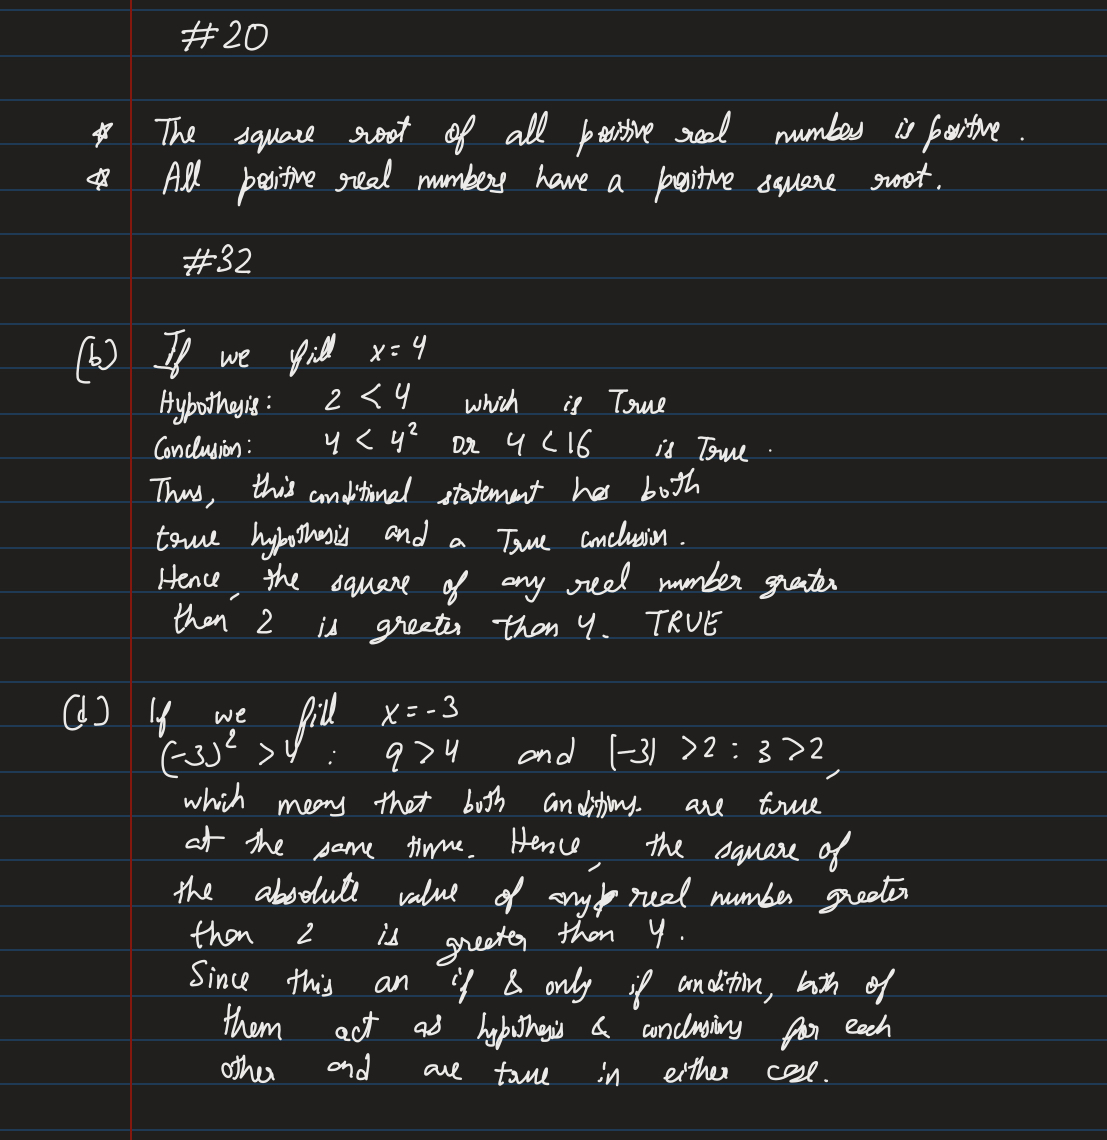 #20
☆ The square root of all positive real numbers is positive.
☆ All positive real numbers have a positive square root.
#32
(b) If we fill x = 4
Hypothesis: 2 < 4 which is True
Conclusion: 4 < 4² or 4 < 16 is True.
Thus, this conditional statement has both
true hypothesis and a True conclusion.
Hence, the square of any real number greater
than 2 is greater than 4. TRUE
(d) If we fill x = -3
(-3)² > 4 : 9 > 4 and |-3| > 2 : 3 > 2,
which means that both conditions are true
at the same time. Hence, the square of
the absolute value of any real number greater
than 2 is greater than 4.
Since this an if & only if condition, both of
them act as hypothesis & conclusions for each
other and are true in either case.